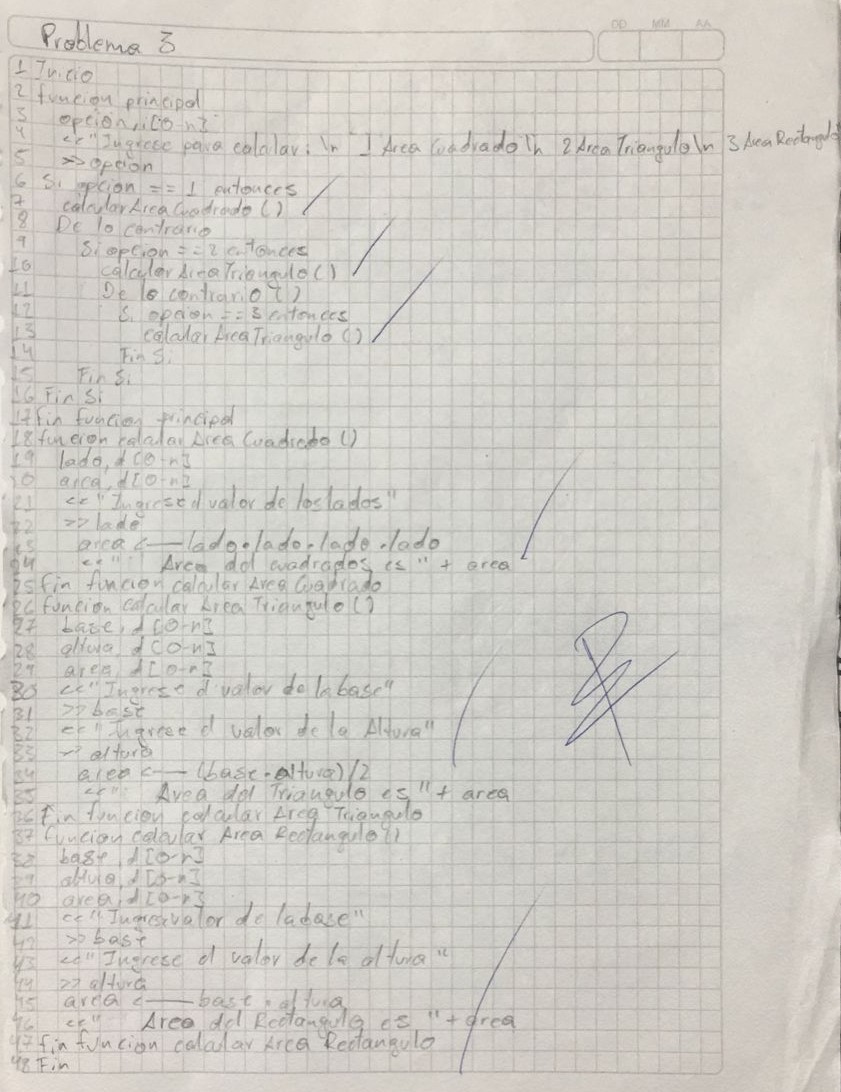 DD MM AA
Problema 3
1 Inicio
2 funcion principal
3 opcion, i [0-n]
4 << "Ingrese para calcular: \n 1 Area Cuadrado \n 2 Area Triangulo \n 3 Area Rectangulo
5 >> opcion
6 Si opcion == 1 entonces
7 calcularAreaCuadrado ( )
8 De lo contrario
9 Si opcion == 2 entonces
10 calcularAreaTriangulo ( )
11 De lo contrario ( )
12 Si opcion == 3 entonces
13 calcularAreaTriangulo ( )
14 Fin Si
15 Fin Si
16 Fin Si
17 fin funcion principal
18 funcion calcular Area Cuadrado ( )
19 lado, d [0-n]
20 area, d [0-n]
21 << "Ingrese el valor de los lados"
22 >> lado
23 area <— lado . lado . lado . lado
24 << " Area del cuadrados es " + area
25 fin funcion calcular Area Cuadrado
26 funcion calcular Area Triangulo ( )
27 base, d [0-n]
28 altura, d [0-n]
29 area, d [0-n]
30 << "Ingrese el valor de la base"
31 >> base
32 << "Ingrese el valor de la Altura"
33 >> altura
34 area <— (base . altura) / 2
35 << " Area del Triangulo es " + area
36 Fin funcion calcular Area Triangulo
37 funcion calcular Area Rectangulo ( )
38 base, d [0-n]
39 altura, d [0-n]
40 area, d [0-n]
41 << "Ingrese valor de la base"
42 >> base
43 << "Ingrese el valor de la altura"
44 >> altura
45 area <— base . altura
46 << " Area del Rectangulo es " + area
47 fin funcion calcular Area Rectangulo
48 Fin